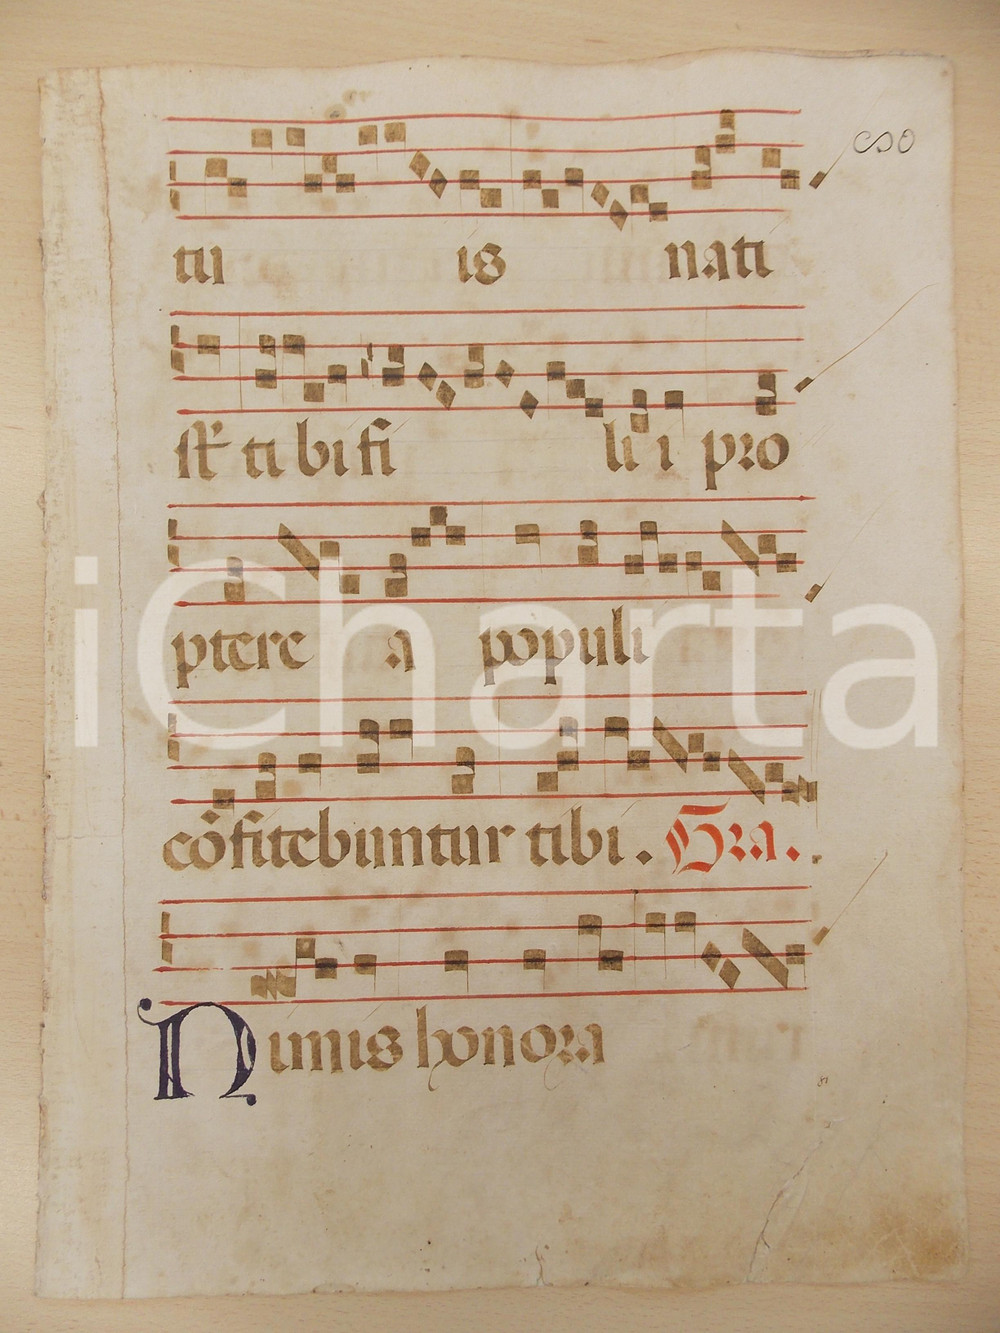 tu is nati
st ti bi fi lii pro
ptere a populi
cōfitebuntur tibi. Gra.
Nimis honora
iCharta